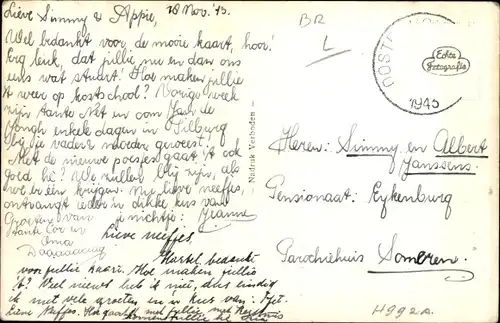 Lieve Simmy & Appie, 18 Nov. '45.
Wel bedankt voor de mooie kaart, hoor!
Erg leuk, dat jullie nu en dan ons
eens wat stuurt! Hoe maken jullie
't weer op kostschool? Vorige week
zijn tante Net en oom Jaan de
Jongh enkele dagen in Tilburg
bij je vaders moeder geweest.
Met de nieuwe poesjes gaat 't ook
goed hè? We zullen blij zijn, als
we er één krijgen. Nu lieve neefjes,
ontvangt ieder 'n dikke kus van
Groeten van je nichtje:
tante Cor en
Oma
Daaaaaaag
Lieve neefjes,
Hartel. bedankt
voor jullie kaart. Hoe maken jullie
't? Veel nieuws heb ik niet, dus eindig
ik met vele groeten en 'n kus van:
Lieve Neefjes. Hoe gaat het met jullie
BR
L
1945
Echte
Fotografie
– Nadruk Verboden –
Heren: Simmy en Albert
Janssens.
Pensionaat: Eykenburg
Parochiehuis Someren.
H992A.